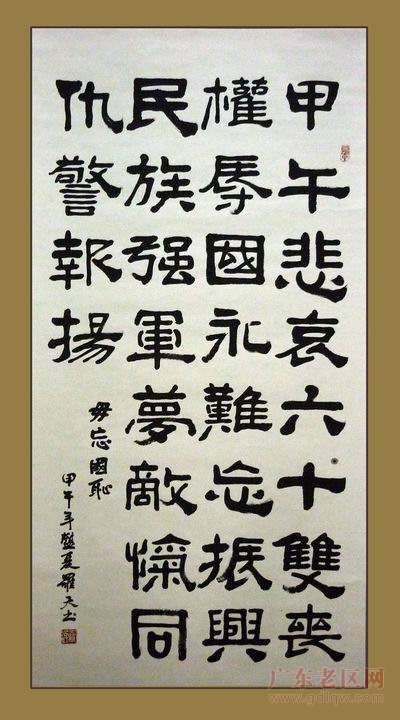 甲午悲哀六十雙喪
權辱國永難忘振興
民族强軍夢敵愾同
仇警報揚
毋忘國恥
甲午年盛夏羅天书
广东老区网
www.gdlqw.com